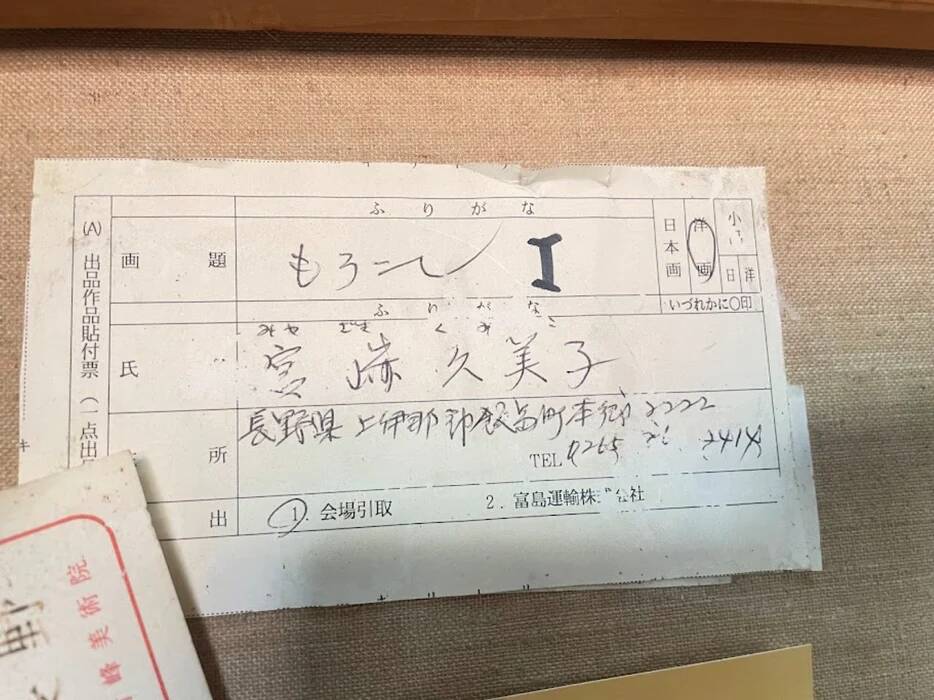 (A) 出品作品貼付票(一点出
画題
ふりがな
もろこし I
日本画
洋画
小
日
洋
いづれかに〇印
ふりがな
みやざき くみこ
氏
宮崎 久美子
所
長野県上伊那郡飯島町本郷2222
TEL 0265 2414
出
1. 会場引取
2. 富島運輸株 会社
峰美術院